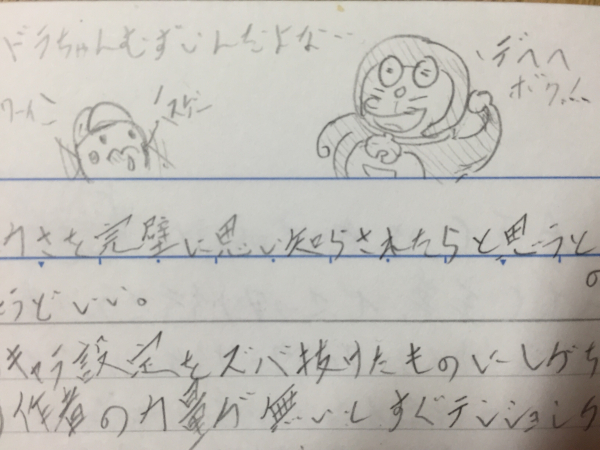 ドラちゃんむずいんだよな…
デヘヘ
ボク…
スゲー
さを完璧に思い知らされたらと思うと
の
うどいい。
キャラ設定をズバ抜けたものにし
作者の力量が無いしすぐテンション